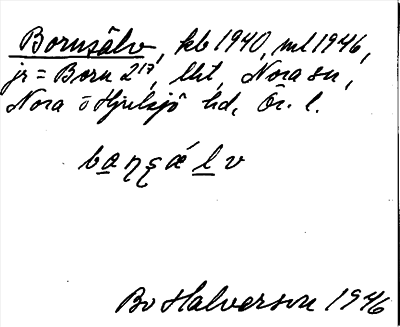 Bornsälv, kb 1940, ml 1946,
jr = Born 2¹⁷, lht, Nora sn,
Nora o Hjulsjö hd, Ör. l.
Bo Halverson 1946